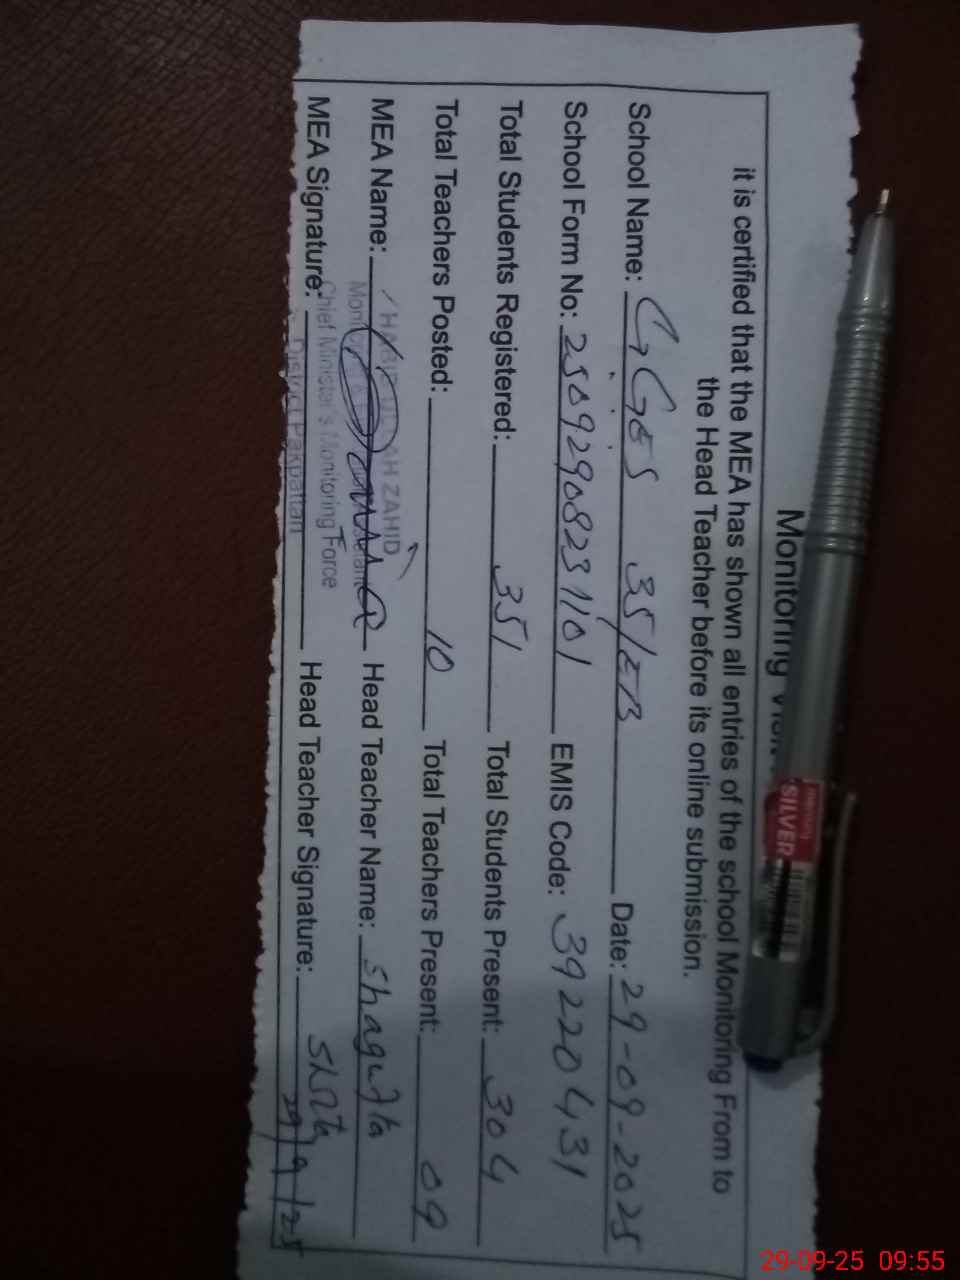 Monitoring
it is certified that the MEA has shown all entries of the school Monitoring From to
the Head Teacher before its online submission.
School Name: GGES 35/EB Date: 29-09-2025
School Form No: 25092908231101 EMIS Code: 39220431
Total Students Registered: 351 Total Students Present: 304
Total Teachers Posted: 10 Total Teachers Present: 09
MEA Name: ZAHID Head Teacher Name: Shagufta
MEA Signature: Head Teacher Signature: 29/9/25
Chief Minister's Monitoring Force
District Pakpattan
SILVER
29-09-25 09:55